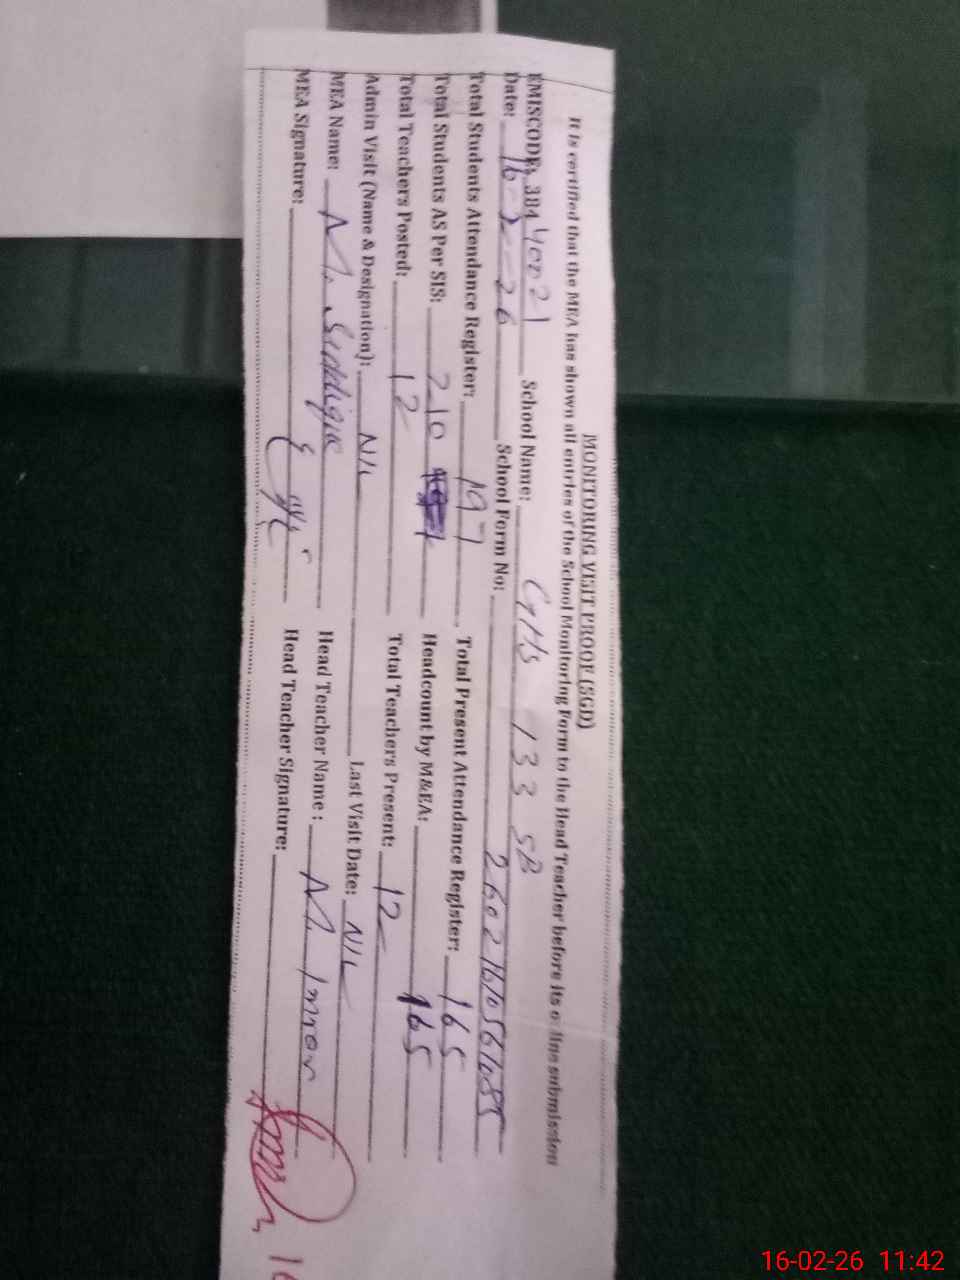 MONITORING VISIT PROOF (SGD)
It is certified that the MEA has shown all entries of the School Monitoring Form to the Head Teacher before its o line submission
EMISCODE: 384 40021 School Name: GHS 133 SB
Date: 16-2-26 School Form No:
Total Students Attendance Register: 197 Total Present Attendance Register: 165
Total Students AS Per SIS: 210 Headcount by M&EA: 165
Total Teachers Posted: 12 Total Teachers Present: 12
Admin Visit (Name & Designation): NIL Last Visit Date: NIL
MEA Name: M. Siddique Head Teacher Name : M Imran
MEA Signature: Head Teacher Signature:
16-02-26 11:42